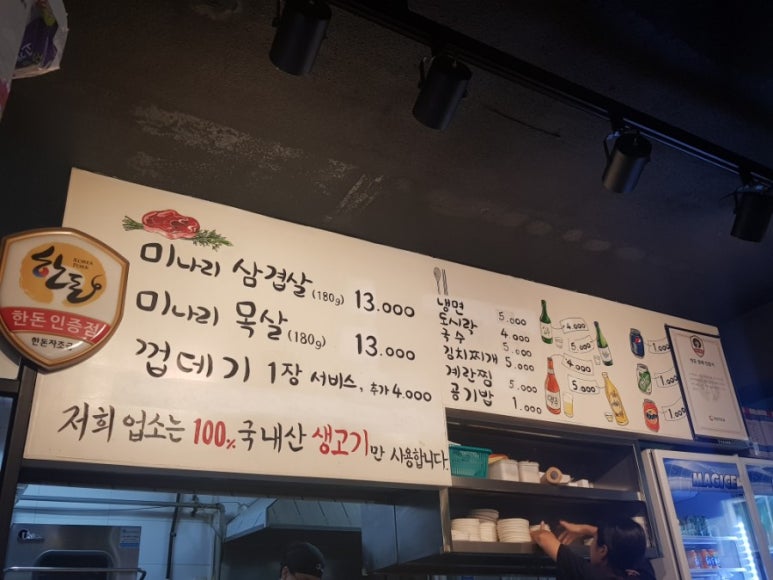 한돈
KOREA PORK
한돈인증점
한돈자조금
미나리 삼겹살 (180g) 13.000
미나리 목살 (180g) 13.000
껍데기 1장 서비스, 추가 4.000
저희 업소는 100% 국내산 생고기만 사용합니다
냉면 5.000
도시락 4.000
국수 5.000
김치찌개 5.000
계란찜 5.000
공기밥 1.000
4.000
5.000
4.000
5.000
1.000
1.000
1.000
MAGIC